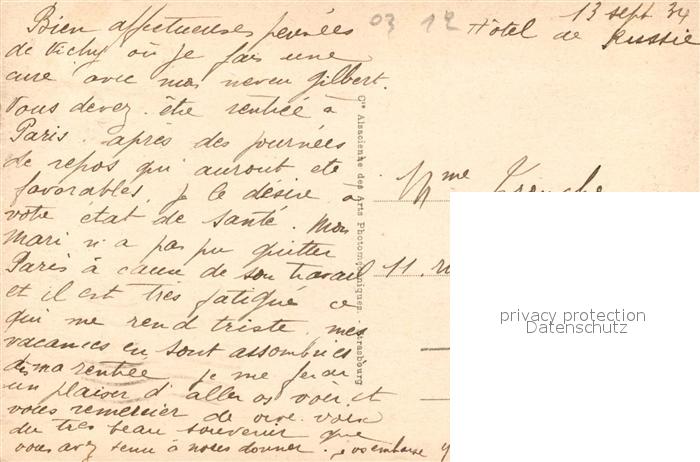 13 sept 34
03 12 Hôtel de Russie
Bien affectueuses pensées
de Vichy où je fais une
cure avec mon neveu Gilbert.
Vous devez être rentrée à
Paris après des journées
de repos qui auront été
favorables, je le désire, à
votre état de santé. Mon
mari n'a pas pu quitter
Paris à cause de son travail
et il est très fatigué ce
qui me rend triste, mes
vacances en sont assombries
dès ma rentrée je me ferai
un plaisir d'aller vs voir et
vous remercier de vive voix
du très beau souvenir que
vous avez tenu à nous donner. je vs embrasse
Mme
11. r
Cie Alsacienne des Arts Photomécaniques. - Strasbourg
privacy protection
Datenschutz